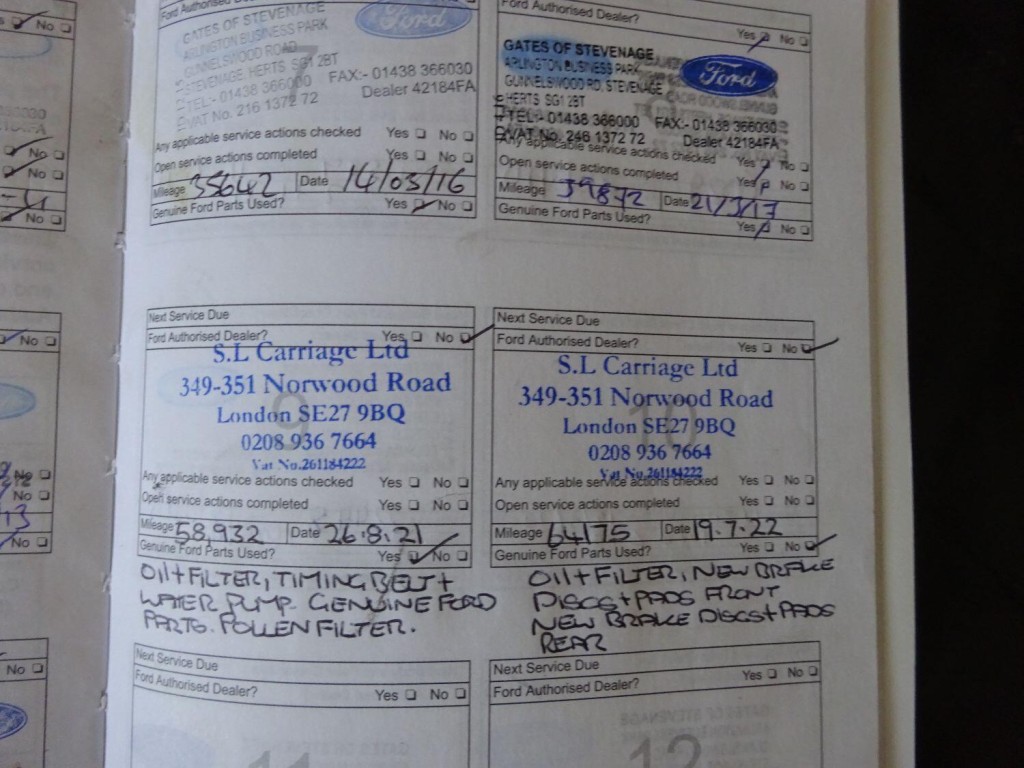 Ford Authorised Dealer?
GATES OF STEVENAGE
ARLINGTON BUSINESS PARK
GUNNELSWOOD ROAD
STEVENAGE, HERTS SG1 2BT
TEL:- 01438 366000 FAX:- 01438 366030
VAT No. 216 1372 72 Dealer 42184FA
Ford
7
Any applicable service actions checked Yes No
Open service actions completed Yes No
Mileage 35642 Date 14/03/16
Genuine Ford Parts Used? Yes No
Ford Authorised Dealer?
Yes No
GATES OF STEVENAGE
ARLINGTON BUSINESS PARK
GUNNELSWOOD RD, STEVENAGE
HERTS SG1 2BT
TEL:- 01438 366000 FAX:- 01438 366030
VAT No. 246 1372 72 Dealer 42184FA
Ford
Any applicable service actions checked Yes No
Open service actions completed Yes No
Mileage 39872 Date 21/3/17
Genuine Ford Parts Used? Yes No
Next Service Due
Ford Authorised Dealer? Yes No
S.L Carriage Ltd
349-351 Norwood Road
London SE27 9BQ
0208 936 7664
Vat No.261184222
9
Any applicable service actions checked Yes No
Open service actions completed Yes No
Mileage 58,932 Date 26.8.21
Genuine Ford Parts Used? Yes No
OIL + FILTER, TIMING BELT +
WATER PUMP. GENUINE FORD
PARTS. POLLEN FILTER.
Next Service Due
Ford Authorised Dealer? Yes No
S.L Carriage Ltd
349-351 Norwood Road
London SE27 9BQ
0208 936 7664
Vat No.261184222
10
Any applicable service actions checked Yes No
Open service actions completed Yes No
Mileage 64175 Date 19.7.22
Genuine Ford Parts Used? Yes No
OIL + FILTER, NEW BRAKE
DISCS + PADS FRONT
NEW BRAKE DISCS + PADS
REAR
Next Service Due
Ford Authorised Dealer? Yes No
11
Next Service Due
Ford Authorised Dealer? Yes No
12